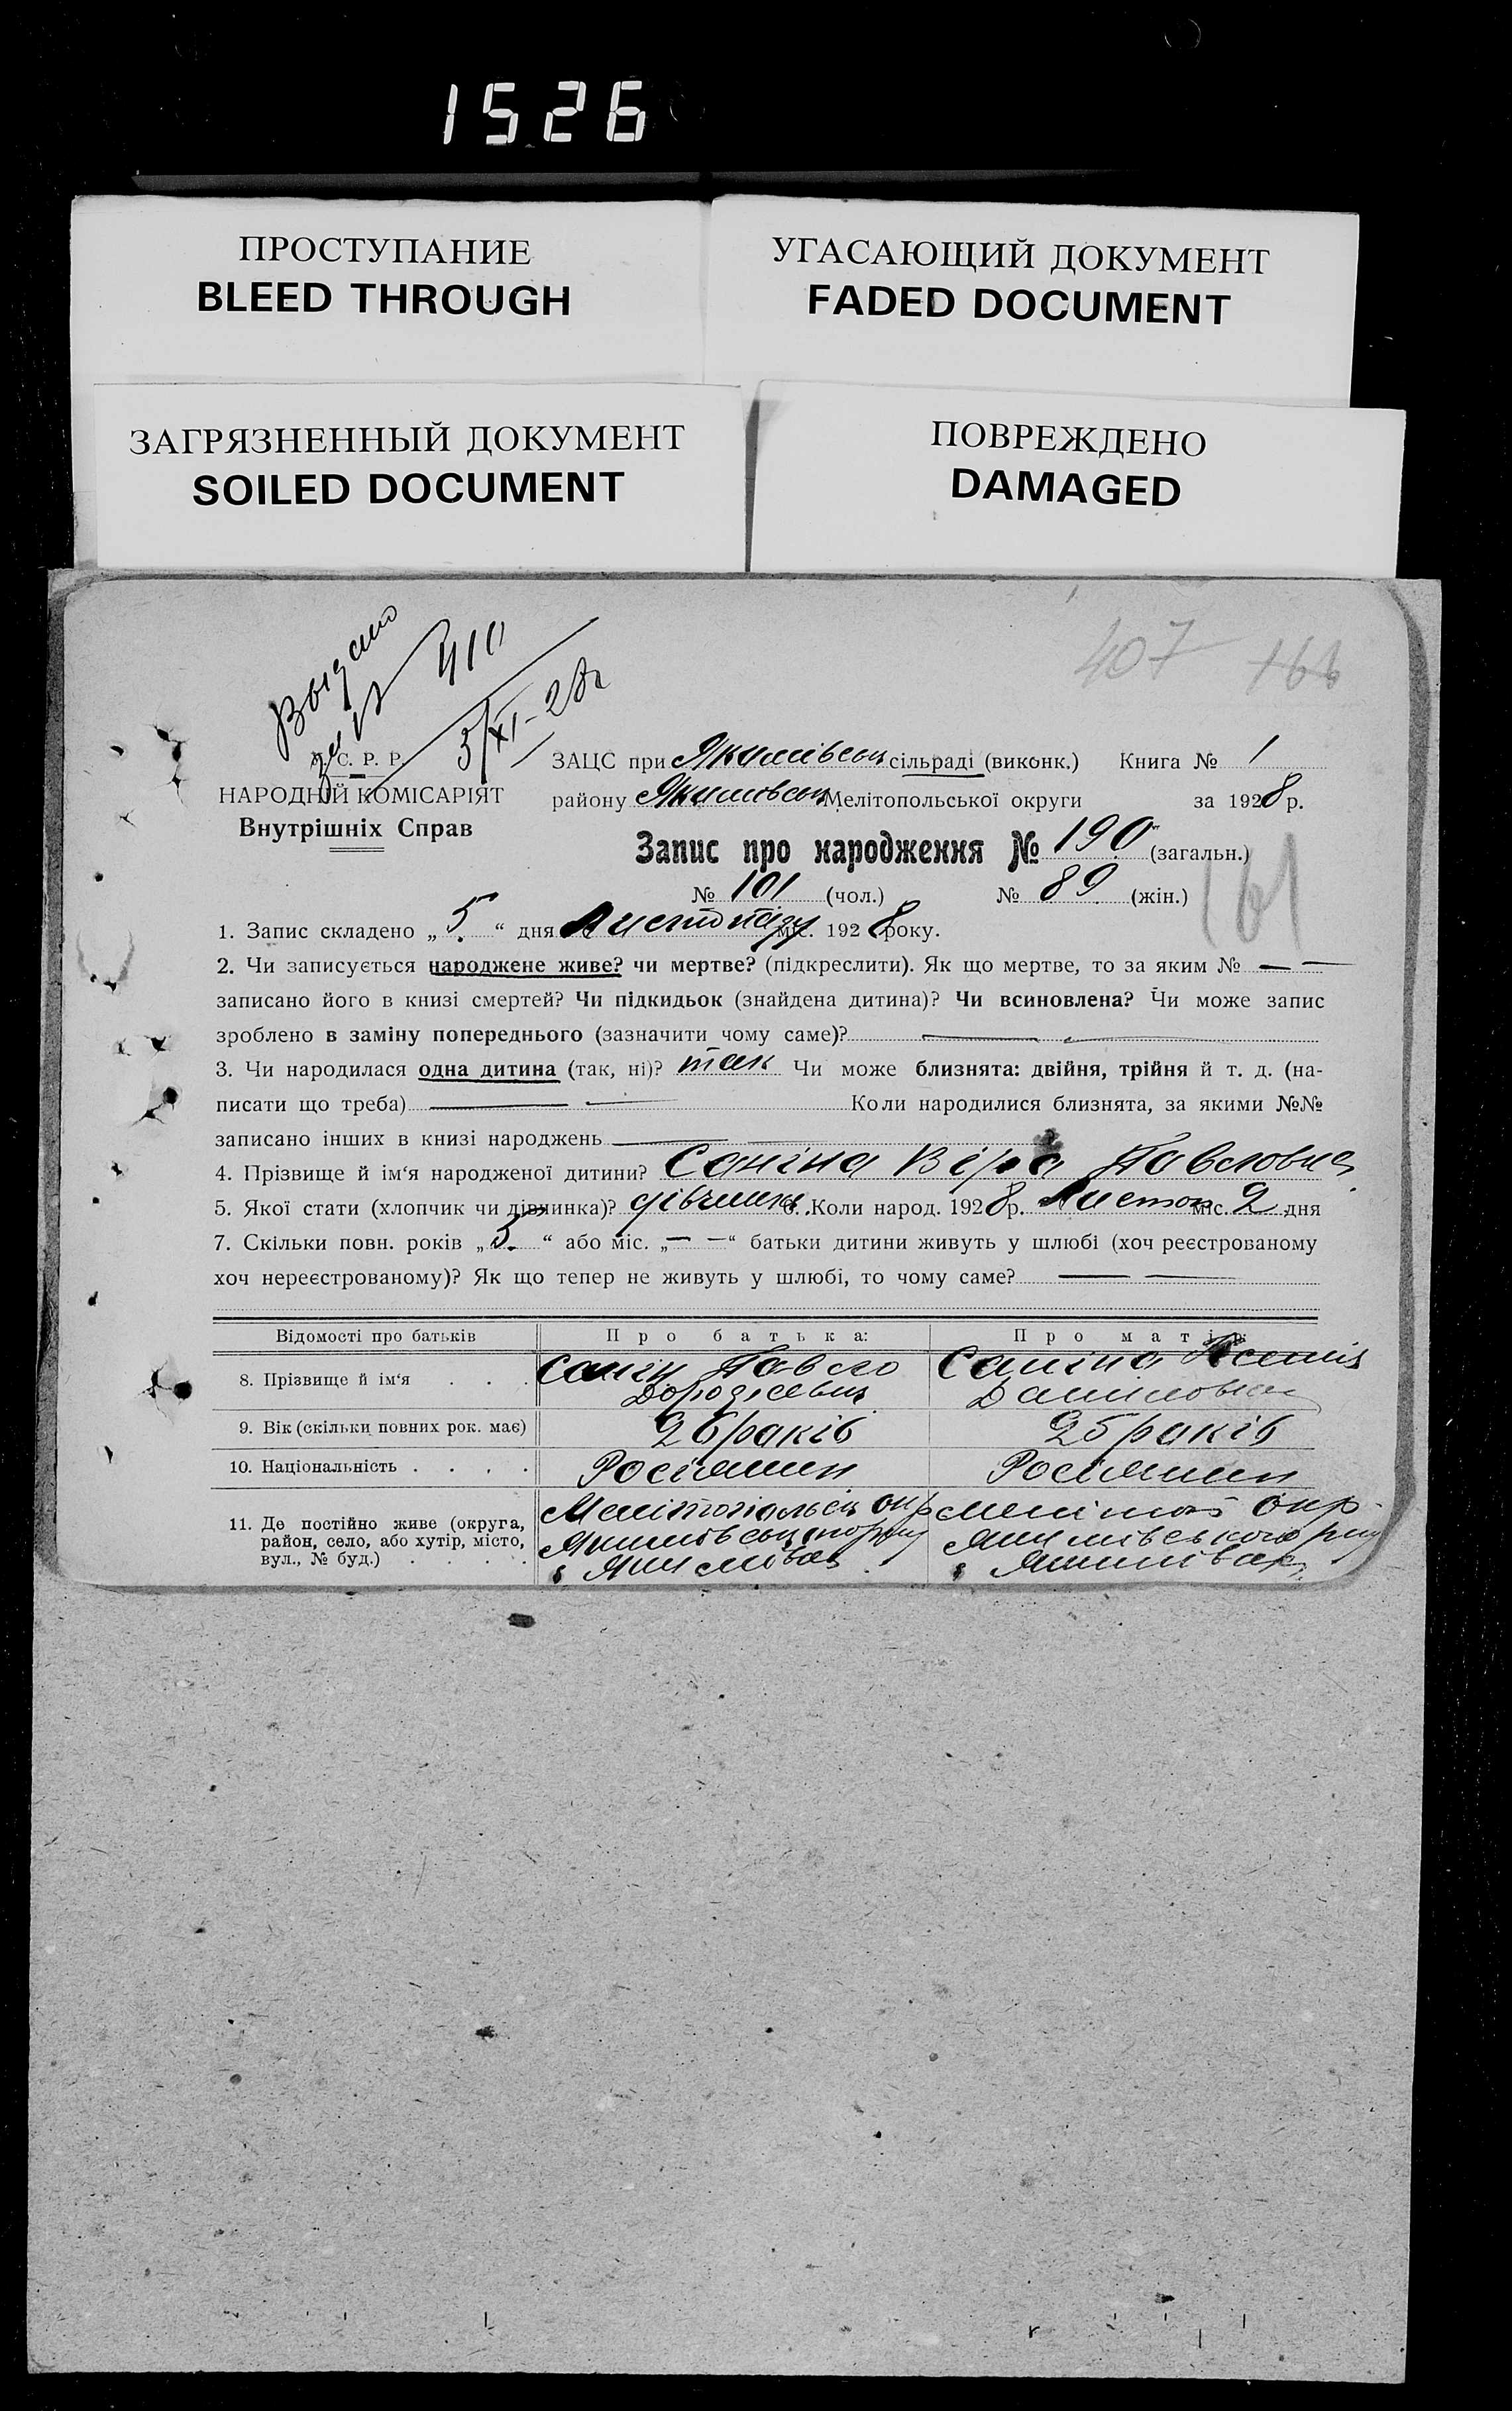 1526
ПРОСТУПАНИЕ
BLEED THROUGH
УГАСАЮЩИЙ ДОКУМЕНТ
FADED DOCUMENT
ЗАГРЯЗНЕННЫЙ ДОКУМЕНТ
SOILED DOCUMENT
ПОВРЕЖДЕНО
DAMAGED
407 166
Выдано
за № 410
5/XI-28г
У. С. Р. Р.
НАРОДНІЙ КОМІСАРІЯТ
Внутрішніх Справ
ЗАЦС при Якимівськ сільраді (виконк.) Книга № 1
району Якимовськ Мелітопольської округи за 1928 р.
Запис про народження № 190 (загальн.)
№ 101 (чол.) № 89 (жін.)
161
1. Запис складено „ 5 “ дня Листопаду міс. 1928 року.
2. Чи записується народжене живе? чи мертве? (підкреслити). Як що мертве, то за яким № — —
записано його в книзі смертей? Чи підкидьок (знайдена дитина)? Чи всиновлена? Чи може запис
зроблено в заміну попереднього (зазначити чому саме)?
3. Чи народилася одна дитина (так, ні)? так Чи може близнята: двійня, трійня й т. д. (на-
писати що треба) Коли народилися близнята, за якими №№
записано інших в книзі народжень
4. Прізвище й ім‘я народженої дитини? Саніна Віра Павловна
5. Якої стати (хлопчик чи дівчинка)? дівчинка 6. Коли народ. 1928 р. Листоп міс. 2 дня
7. Скільки повн. років „ 5. “ або міс. „— —“ батьки дитини живуть у шлюбі (хоч реєстрованому
хоч нереєстрованому)? Як що тепер не живуть у шлюбі, то чому саме? — —
Відомості про батьків Про батька: Про матір:
8. Прізвище й ім‘я . . . Санін Павло Саніна Ксенія
Даніловна
9. Вік (скільки повних рок. має) 26 років 25 років
10. Національність . . . . Росіянин Росіянин
11. Де постійно живе (округа, Мелітопольськ окр Меліто окр.
район, село, або хутір, місто, Якимівського району Якимівського рну
вул., № буд.) . . . . с Якимовка с Якимівка